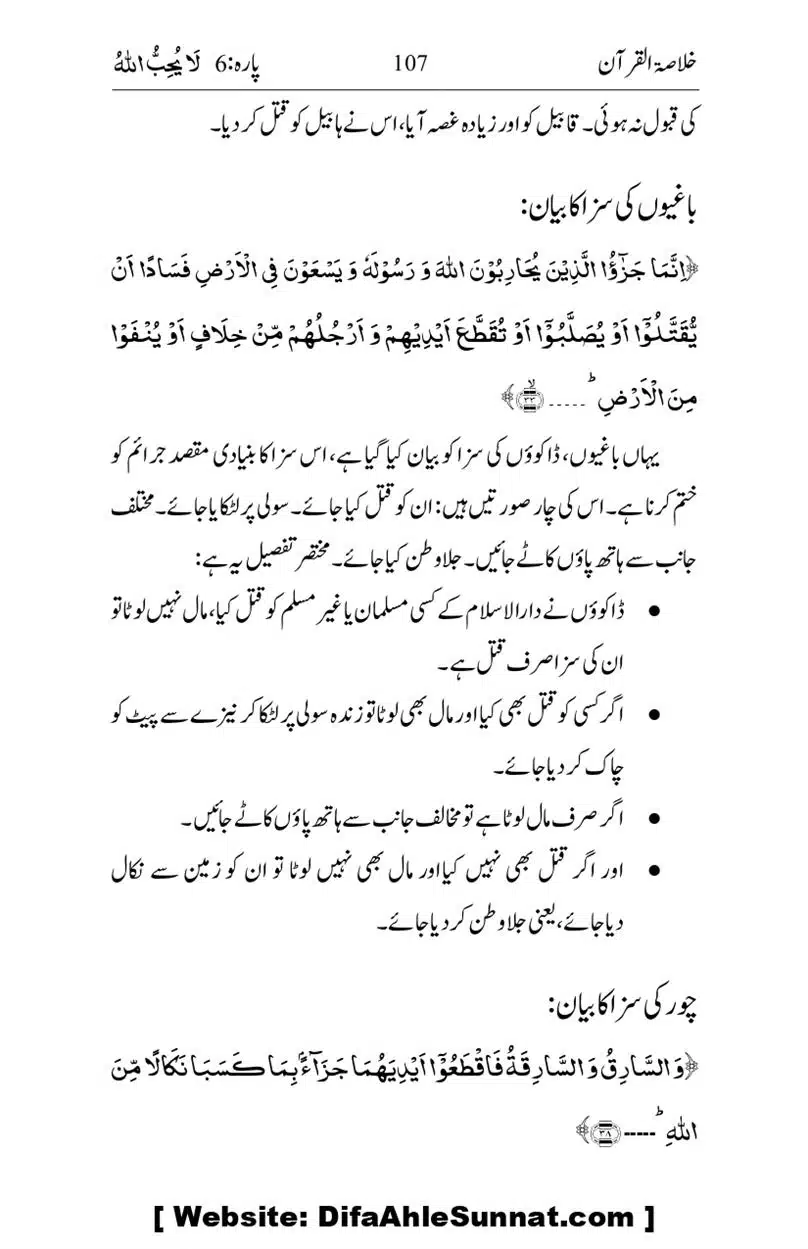 خلاصۃ القرآن 107 پارہ:6 لَا یُحِبُّ اللہُ
کی قبول نہ ہوئی۔ قابیل کو اور زیادہ غصہ آیا، اس نے ہابیل کو قتل کر دیا۔
باغیوں کی سزا کا بیان:
﴿اِنَّمَا جَزٰٓؤُا الَّذِیْنَ یُحَارِبُوْنَ اللہَ وَ رَسُوْلَہٗ وَ یَسْعَوْنَ فِی الْاَرْضِ فَسَادًا اَنْ
یُّقَتَّلُوْۤا اَوْ یُصَلَّبُوْۤا اَوْ تُقَطَّعَ اَیْدِیْہِمْ وَ اَرْجُلُہُمْ مِّنْ خِلَافٍ اَوْ یُنْفَوْا
مِنَ الْاَرْضِ ؕ ۔۔۔۔۔ ﴿ۙ۳۳﴾﴾
یہاں باغیوں، ڈاکوؤں کی سزا کو بیان کیا گیا ہے، اس سزا کا بنیادی مقصد جرائم کو
ختم کرنا ہے۔ اس کی چار صورتیں ہیں: ان کو قتل کیا جائے۔ سولی پر لٹکایا جائے۔ مختلف
جانب سے ہاتھ پاؤں کاٹے جائیں۔ جلا وطن کیا جائے۔ مختصر تفصیل یہ ہے:
● ڈاکوؤں نے دارالاسلام کے کسی مسلمان یا غیر مسلم کو قتل کیا، مال نہیں لوٹا تو
ان کی سزا صرف قتل ہے۔
● اگر کسی کو قتل بھی کیا اور مال بھی لوٹا تو زندہ سولی پر لٹکا کر نیزے سے پیٹ کو
چاک کر دیا جائے۔
● اگر صرف مال لوٹا ہے تو مخالف جانب سے ہاتھ پاؤں کاٹے جائیں۔
● اور اگر قتل بھی نہیں کیا اور مال بھی نہیں لوٹا تو ان کو زمین سے نکال
دیا جائے، یعنی جلا وطن کر دیا جائے۔
چور کی سزا کا بیان:
﴿وَ السَّارِقُ وَ السَّارِقَۃُ فَاقْطَعُوْۤا اَیْدِیَہُمَا جَزَآءًۢ بِمَا کَسَبَا نَکَالًا مِّنَ
اللہِ ؕ ۔۔۔۔۔ ﴿۳۸﴾﴾
[ Website: DifaAhleSunnat.com ]